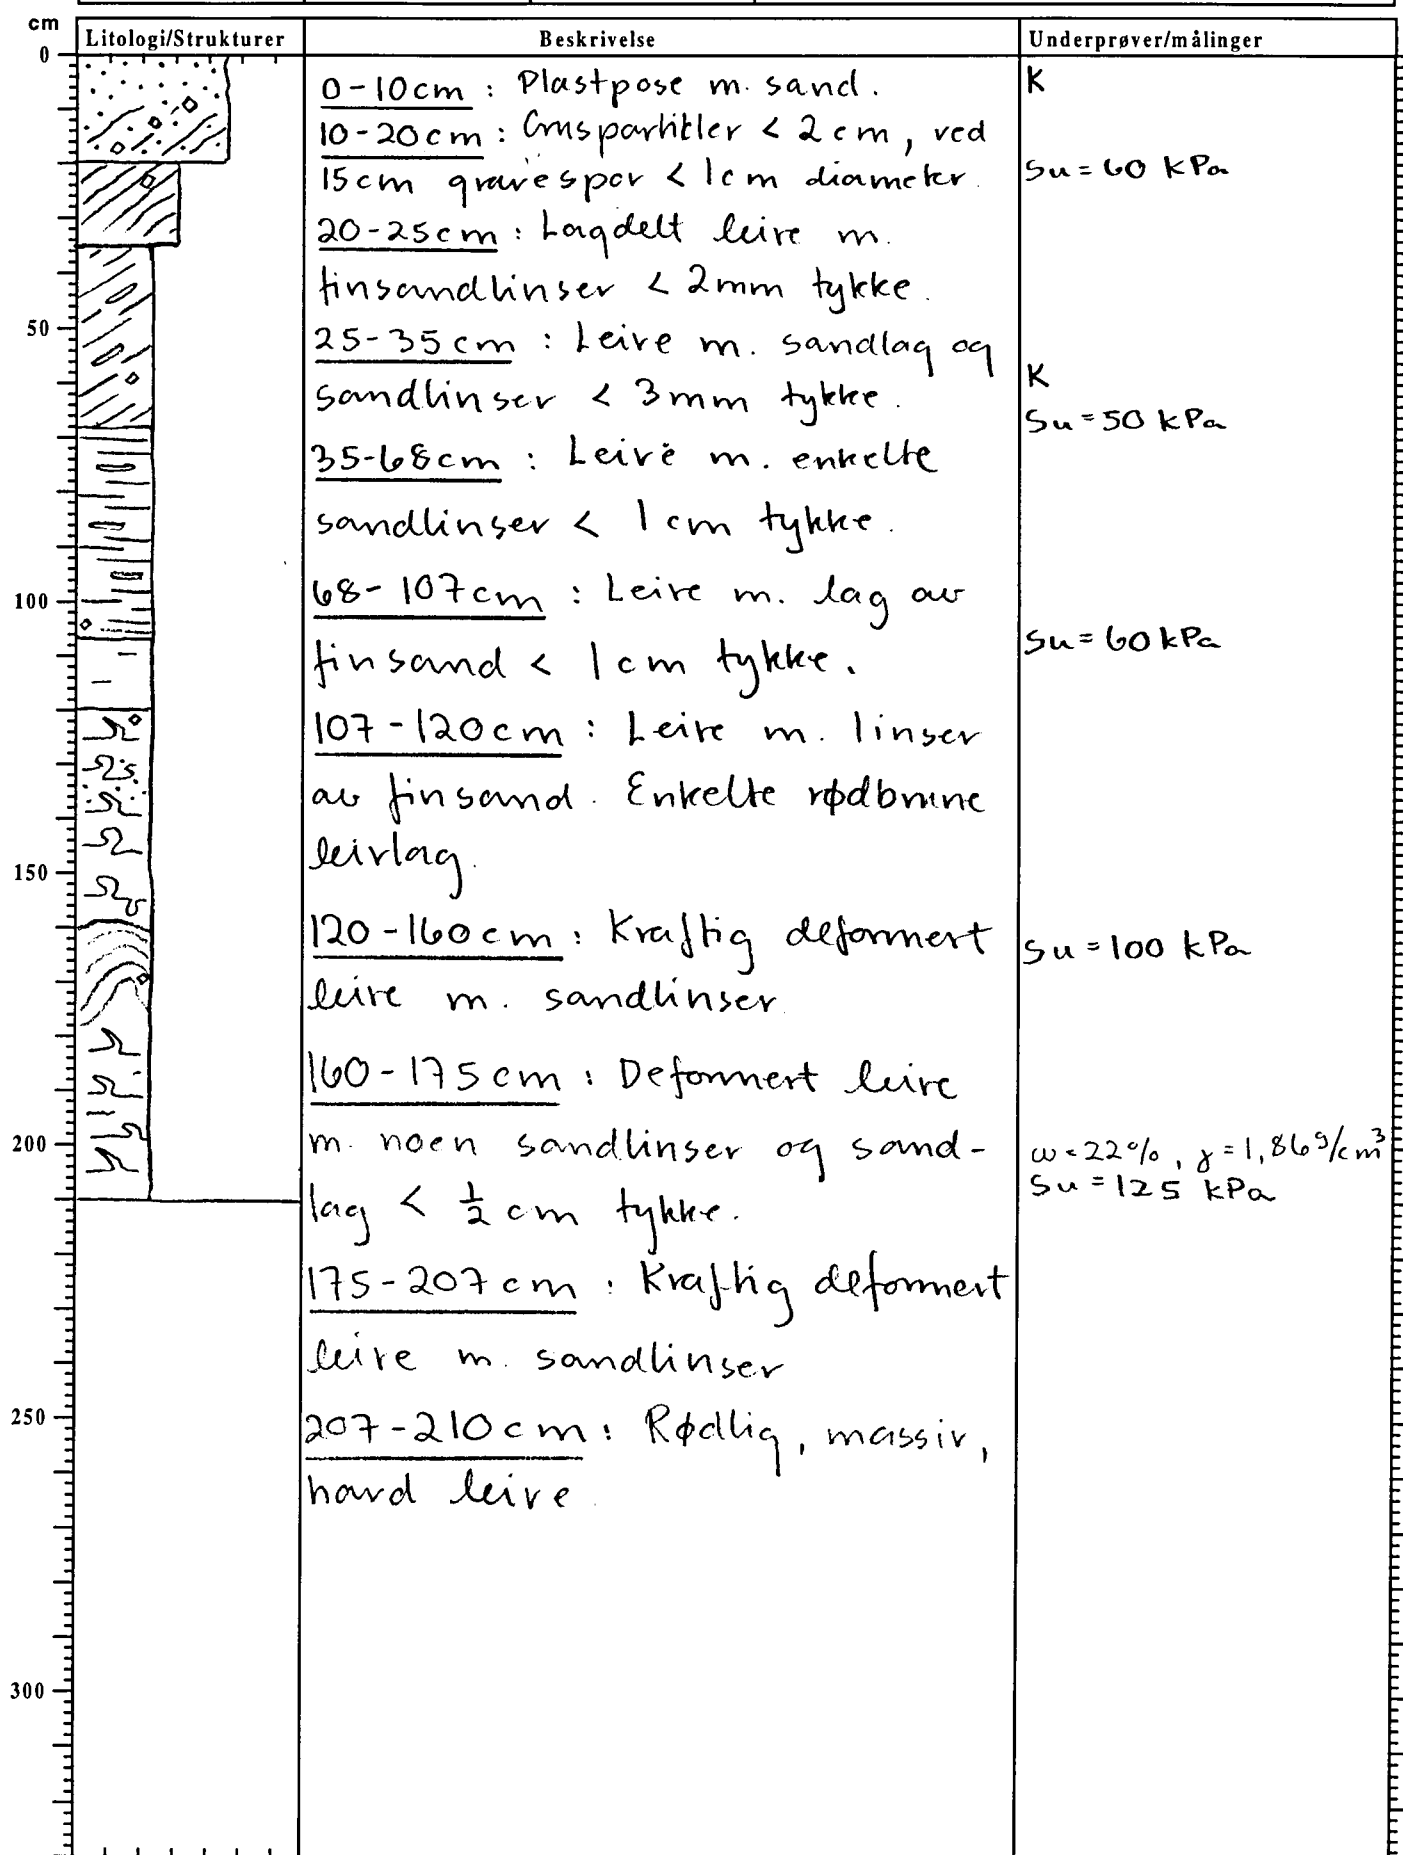 cm
Litologi/Strukturer
Beskrivelse
Underprøver/målinger
0
50
100
150
200
250
300
0-10cm : Plastpose m. sand.
10-20cm : Gruspartikler < 2 cm, ved
15cm gravespor < 1cm diameter.
20-25cm : Lagdelt leire m.
finsandlinser < 2mm tykke.
25-35 cm : Leire m. sandlag og
sandlinser < 3mm tykke.
35-68cm : Leire m. enkelte
sandlinser < 1 cm tykke.
68-107cm : Leire m. lag av
finsand < 1 cm tykke.
107-120cm : Leire m. linser
av finsand. Enkelte rødbrune
leirlag.
120-160cm : Kraftig deformert
leire m. sandlinser
160-175cm : Deformert leire
m. noen sandlinser og sand-
lag < 1/2 cm tykke.
175-207cm : Kraftig deformert
leire m. sandlinser
207-210cm : Rødlig, massiv,
hard leire
K
Su = 60 kPa
K
Su = 50 kPa
Su = 60 kPa
Su = 100 kPa
w = 22%, γ = 1,86g/cm³
Su = 125 kPa